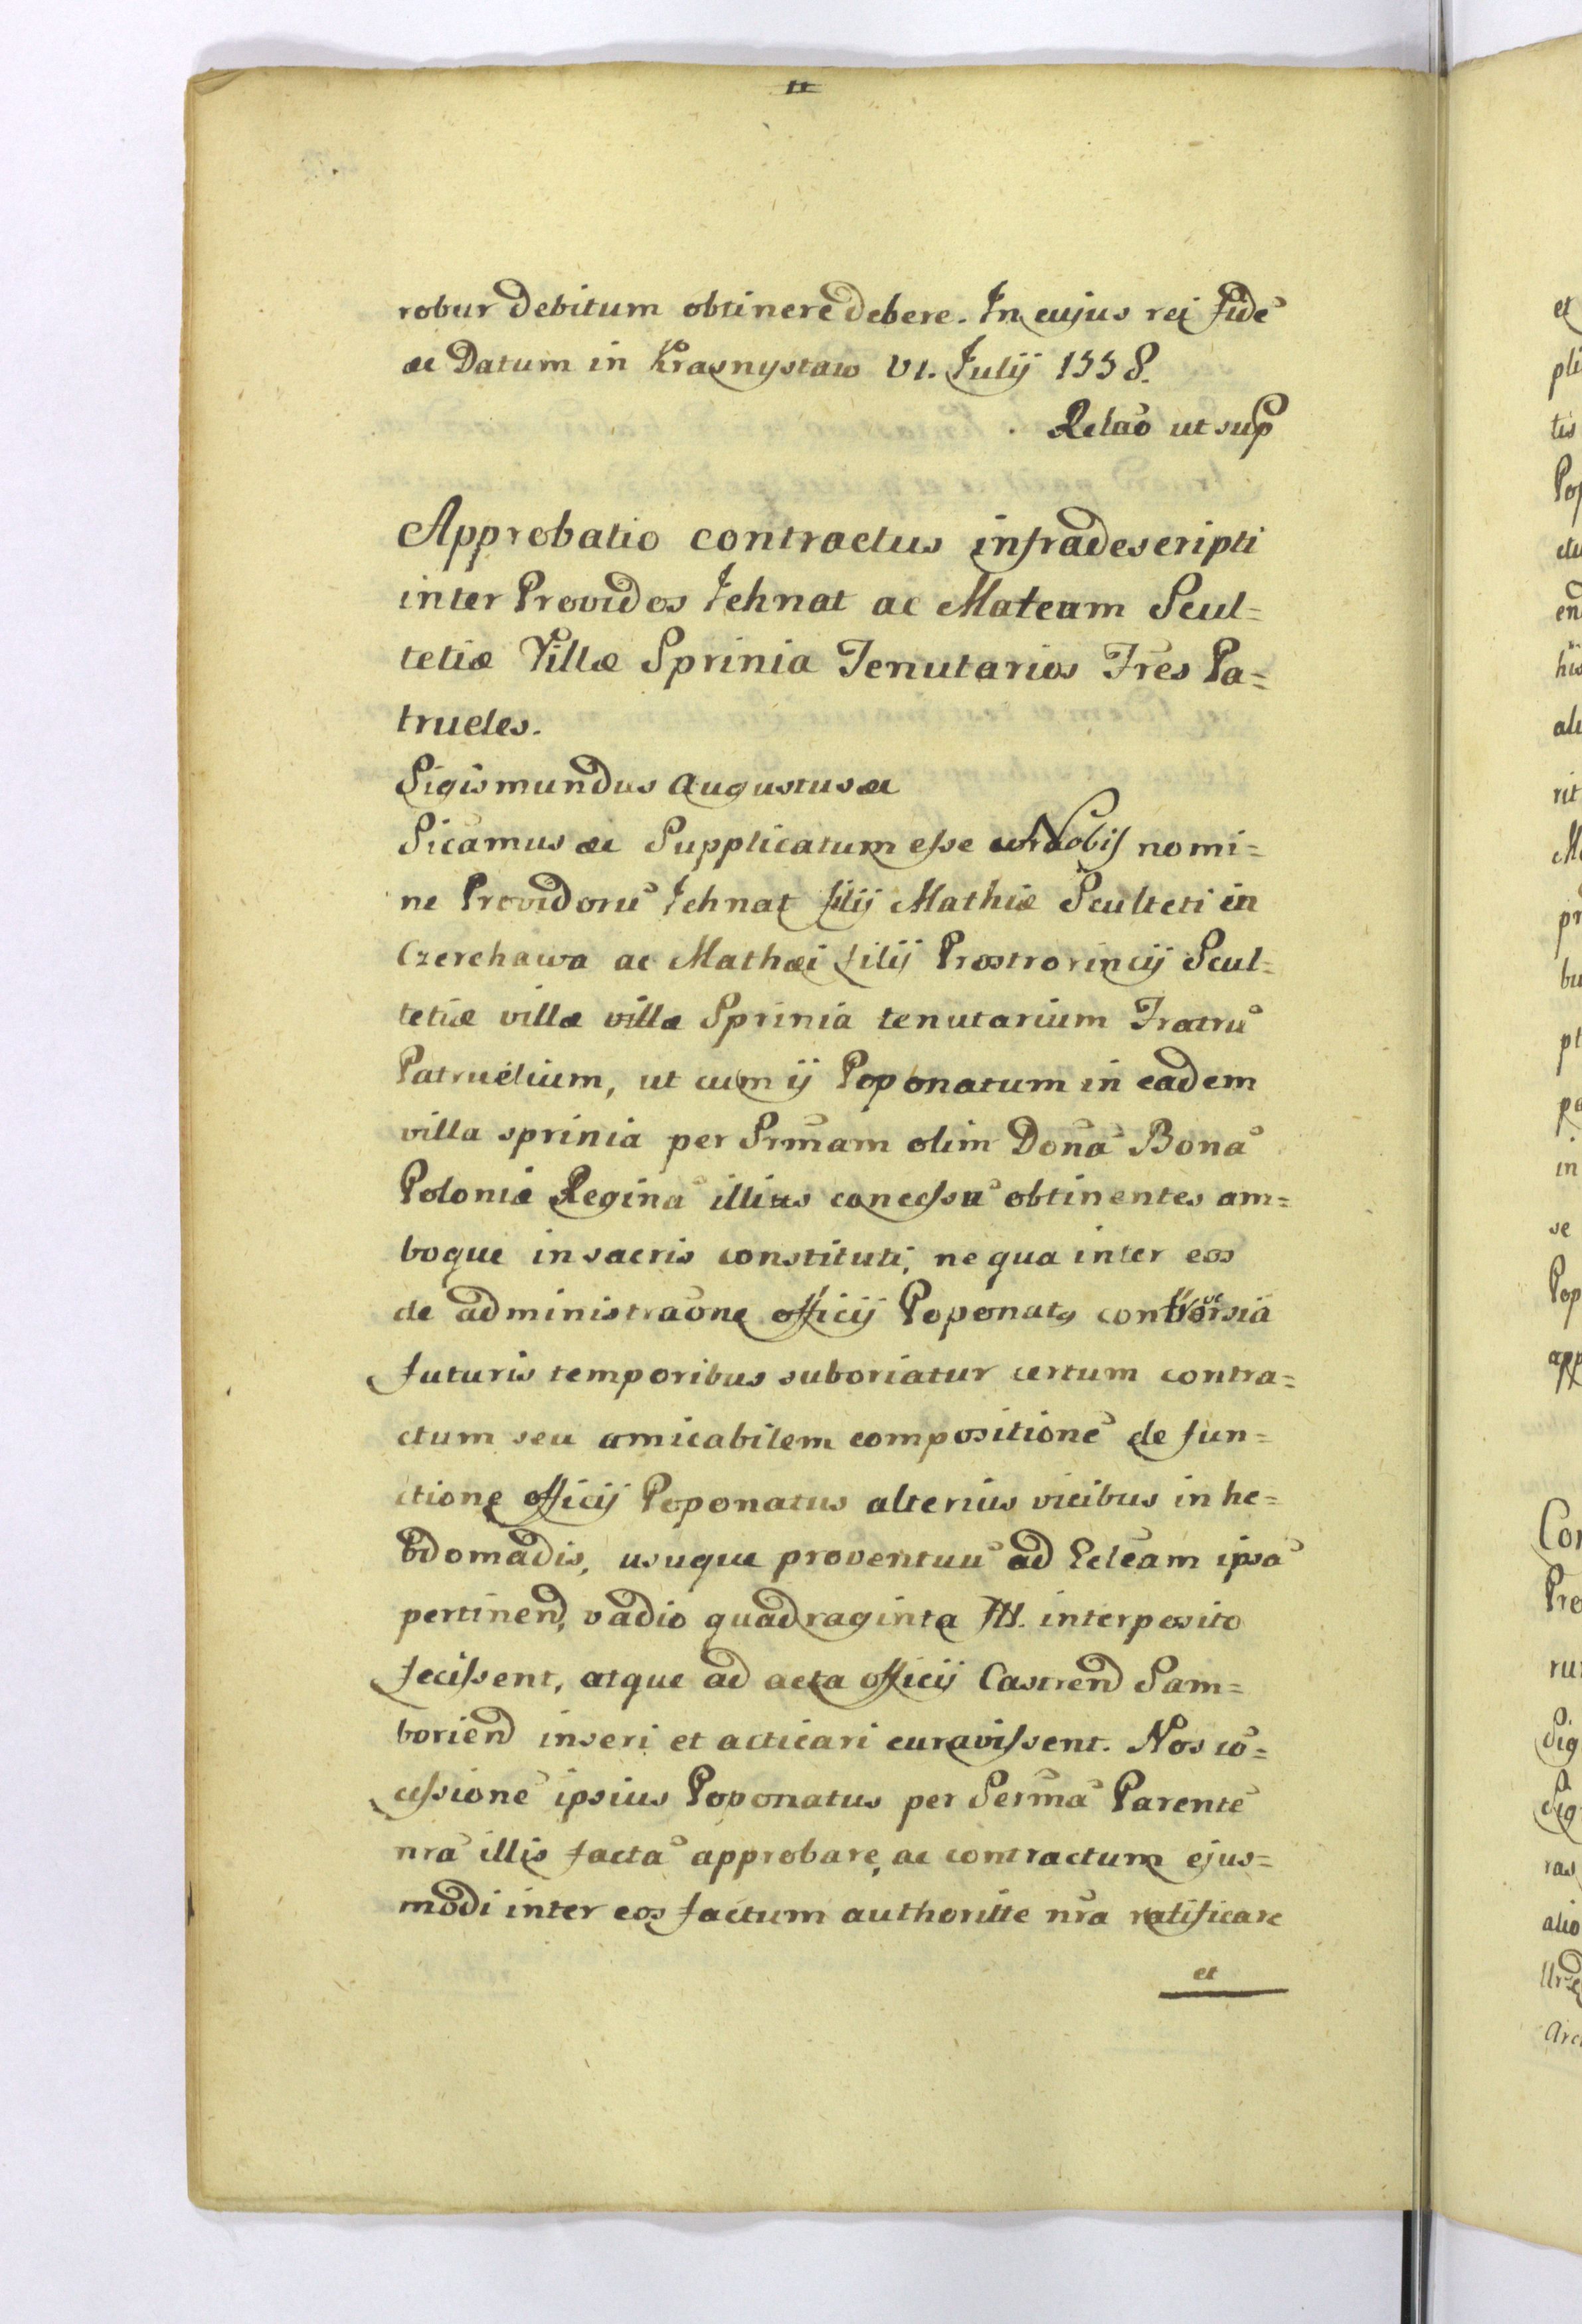 robur debitum obtinere debere. In cujus rei fidē
ac Datum in Krasnystaw VI. Julij 1558.
Relaō ut sup
Approbatio contractus infradescripti
inter Providos Ichnat ac Mateam Scul=
tetiæ Villæ Sprinia Tenutarios Fres Pa=
trueles.
Sigismundus Augustus ac
Sicamus ac Supplicatum esse Nobis nomi=
ne Providorū Ichnat filij Mathiæ Sculteti in
Czerchawa ac Mathæi filij Prostrorincij Scul=
tetiæ villæ villæ Sprinia tenutarium Fratrū
Patruelium, ut cum ij Poponatum in eadem
villa sprinia per Srmam olim Donā Bonā
Poloniæ Reginā illius concessū obtinentes am=
boque in sacris constituti, ne qua inter eos
de administraōne officij Poponatq controversia
futuris temporibus suboriatur certum contra=
ctum seu amicabilem compositionē de fun=
ctione officij Poponatus alterius vicibus in he=
bdomadis, usuque proventuū ad Eclēam ipsā
pertinend, vadio quadraginta M. interposito
fecissent, atque ad acta officij Castrend Sam=
boriend inseri et acticari curavissent. Nos cō=
cessionē ipsius Poponatus per Sermā Parentē
nrā illis factā approbare, ac contractum ejus=
modi inter eos factum authoritte nrā ratificare
et